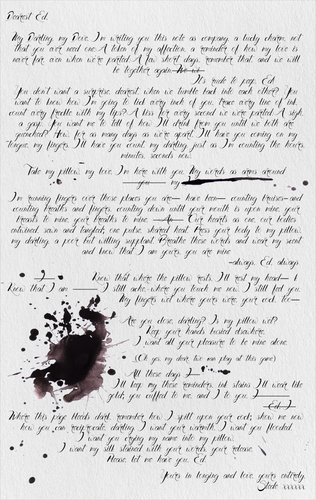 Dearest Ed,
My Darling, my Dove. I'm writing you this note as company, a lucky charm, not
that you ever need one. A token of my affection, a reminder of how my love is
ever fair, even when we're parted. A few short days, remember that, and we will
be together again.
It's rude to page, Ed.
You don't want a surprise, dearest, when we tumble back into each other? You
want to know how I'm going to lick every inch of you, trace every line of ink,
count every freckle with my lips? A kiss for every second we were parted. A sigh,
a gasp. You want me to tell of how I'll drink from you until we both are
quenched? How, for as many days as we're apart, I'll have you coming on my
tongue, my fingers. I'll have you count, my darling, just as I'm counting the hours,
minutes, seconds now.
Take my pillow, my love, I'm here with you. My words as arms around
you my
I'm running fingers over those places you are have counting bruises and
counting breaths and fingers, counting down until your mouth is upon mine, your
breasts to mine your breaths to mine Our hearts as one, our bodies
entwined, skin and tangled, one pulse, shared heat. Press your body to my pillow,
my darling, a poor but willing supplant. Breathe these words and wear my scent
and know that I am yours, you are mine
always, Ed, always
Know that where the pillow rests, I'll rest my head I
Know that I am I still ache where you touch me now, I still feel you.
My fingers wet where yours were, your cock, too
Are you close, darling? Is my pillow wet?
Keep your hands busied elsewhere.
I want all your pleasure to be mine alone.
(Oh yes, my dear, two may play at this game)
All these days I
I'll keep my these reminders, ink stains I'll wear like
gold, you cuffed to me and I to you. I
Ed, I
Where this page bleeds dark, remember how I spilt upon your cock, show me now
how you can reciprocate, darling. I want your warmth. I want you flooded.
I want you crying my name into my pillow.
I want my silk stained with your words, your release.
Please, let me have you, Ed.
Yours in longing and love, yours entirely,
Stede xxxxxx